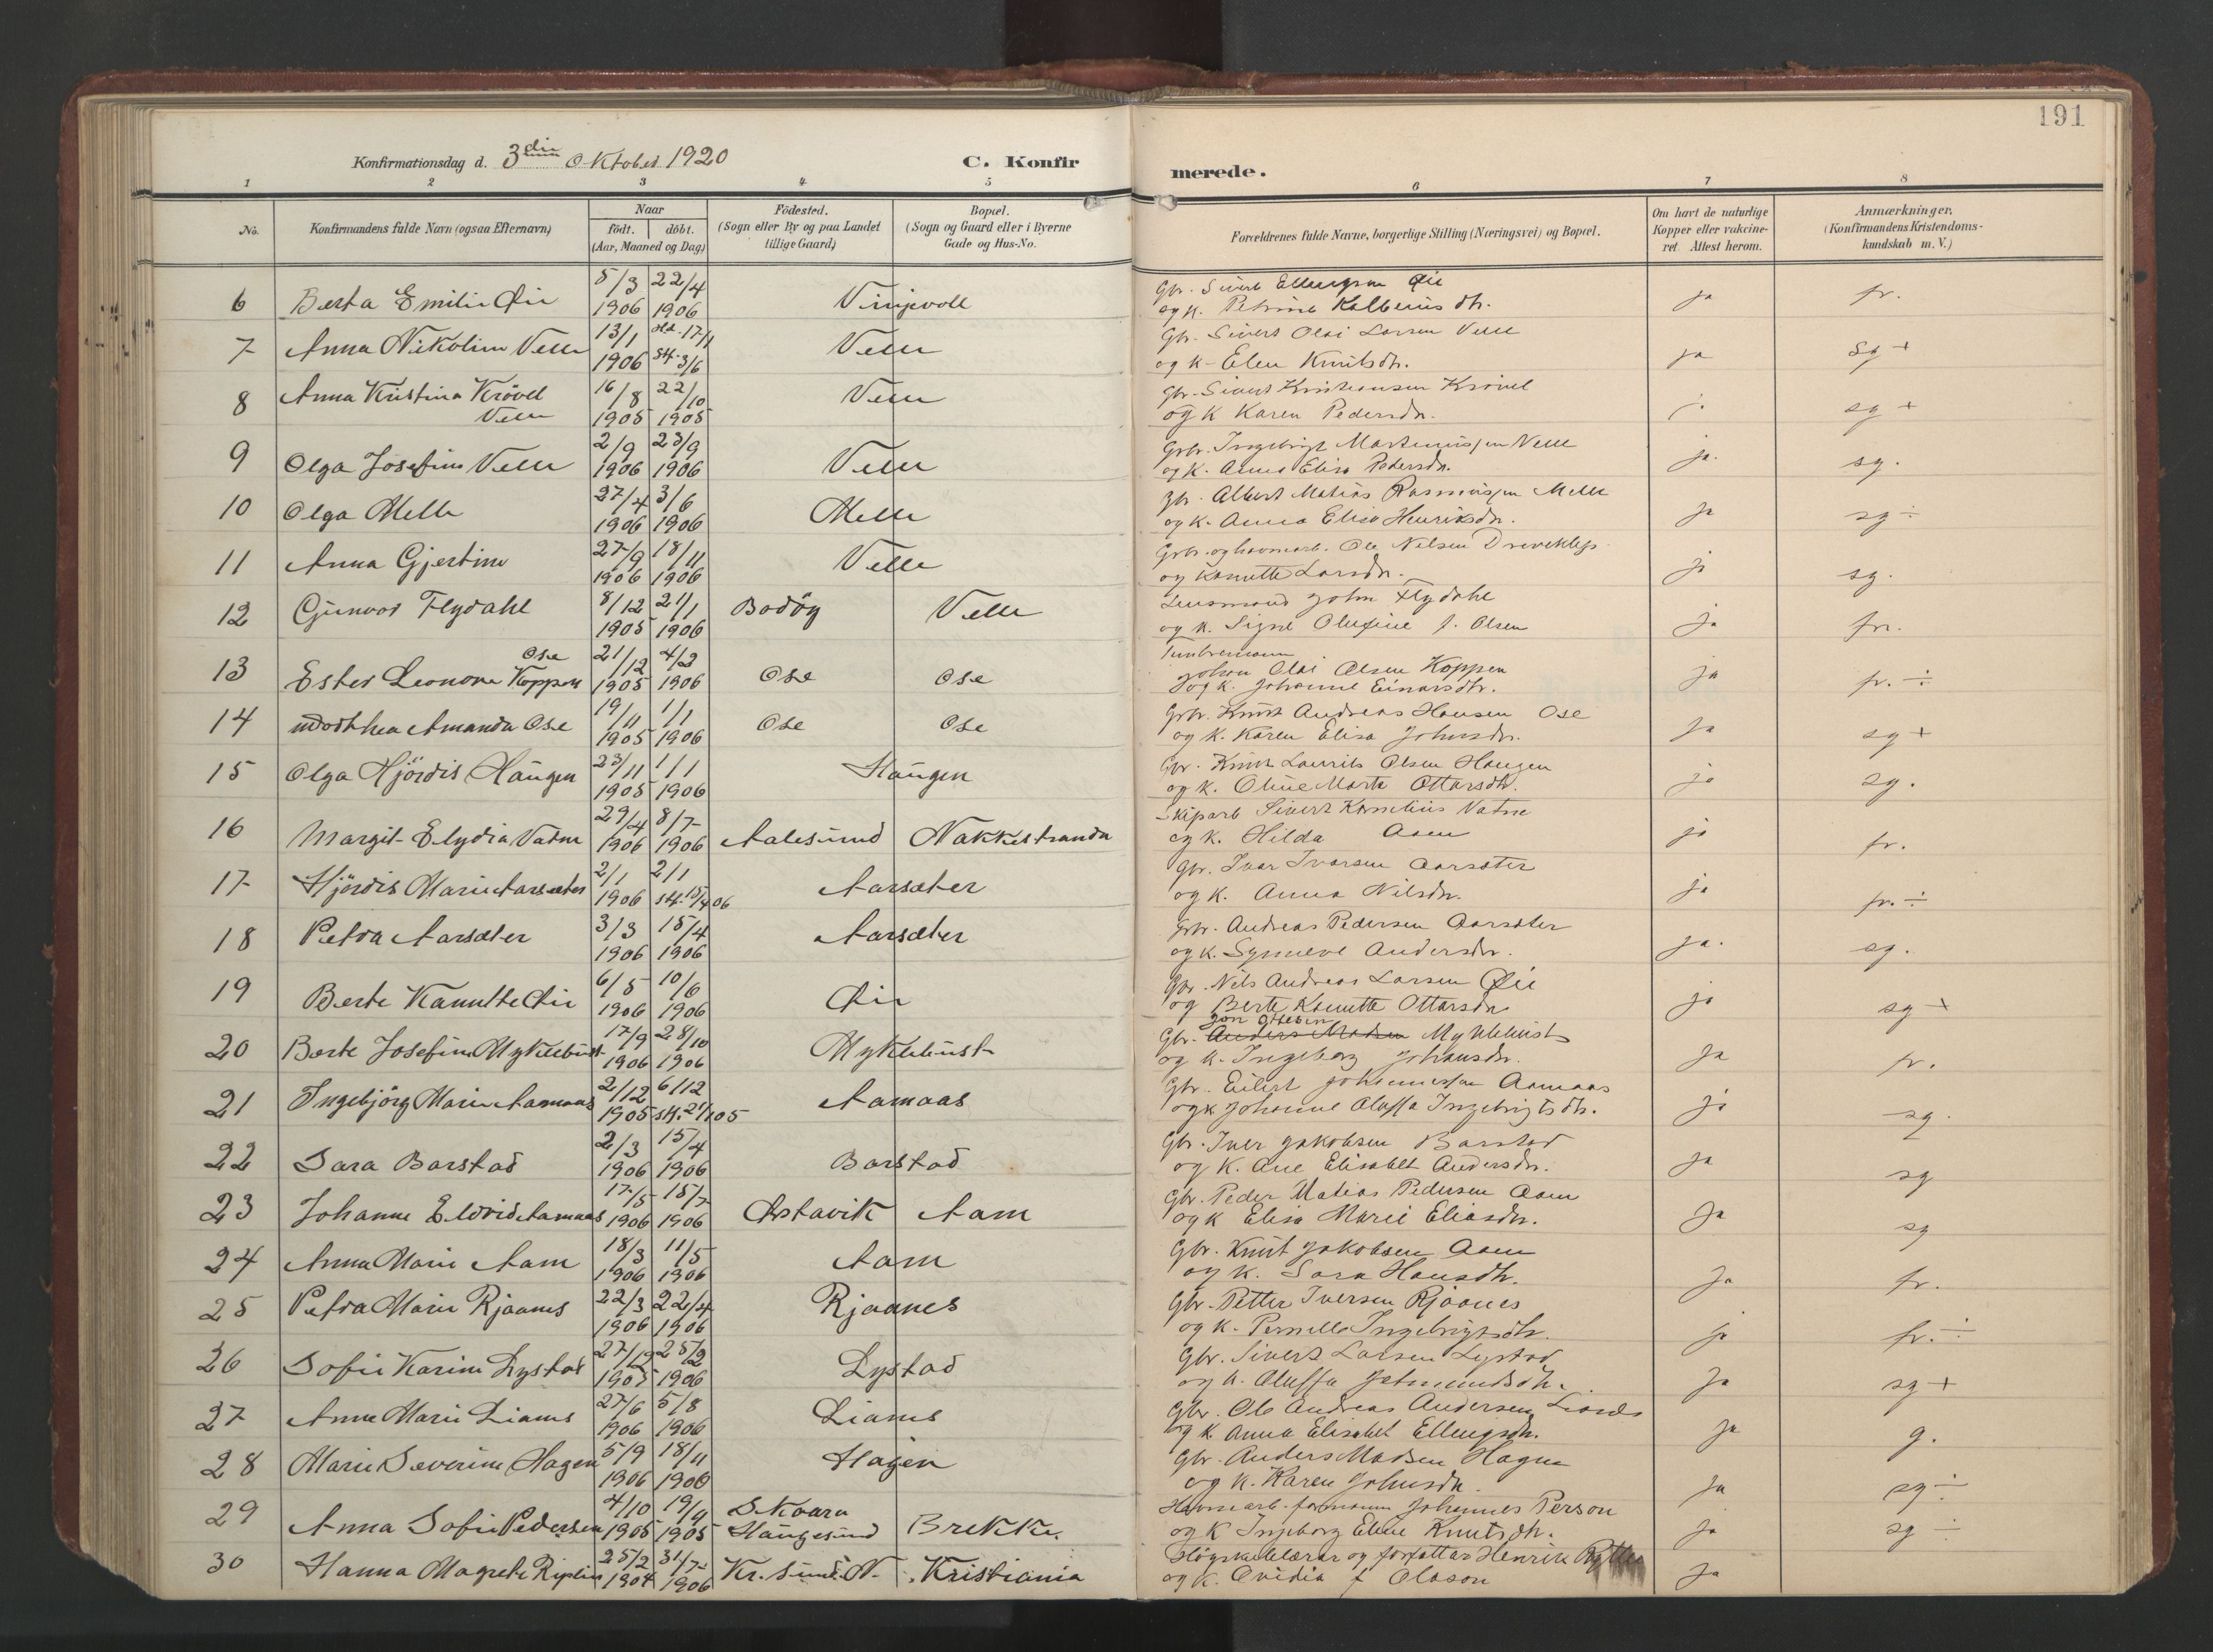 191
Konfirmationsdag d. 3die Oktober 1920
C. Konfir
merede.
1 2 3 4 5 6 7 8
No.
Konfirmandens fulde Navn (ogsaa Efternavn)
Naar
födt. döbt.
(Aar, Maaned og Dag)
Födested.
(Sogn eller By og paa Landet
tillige Gaard)
Bopæl.
(Sogn og Gaard eller i Byerne
Gade og Hus-No.
Forældrenes fulde Navne, borgerlige Stilling (Næringsvei) og Bopæl.
Om havt de naturlige
Kopper eller vakcine-
ret. Attest herom.
Anmærkninger.
(Konfirmandens Kristendoms-
kundskab m. V.)
5/3 22/4 Gbr. Sivert Ellingsen Øie
6 Berta Emilie Øie 1906 1906 Vinjevoll og K. Petrine Kolbeins dtr. ja fr.
13/1 17/1 Gbr. Sivert Olai Larsen Velle
7 Anna Nikoline Velle 1906 st. 3/6 Velle og K. Elen Knutsdtr. ja sg +
16/8 22/10 Gbr. Sivert Kristiansen Krövel
8 Anna Kristina Krövel Velle 1905 1905 Velle og K Karen Pedersdtr. sg +
2/9 23/9 Gbr. Ingebrigt Martinussen Velle
9 Olga Josefine Velle 1906 1906 Velle og K. Anna Elisa Pedersdtr. ja. sg.
27/4 3/6 Gbr. Albert Matias Rasmussen Melle
10 Olga Melle 1906 1906 Melle og K. Anna Elisa Henriksdtr. ja sg ÷
27/9 18/11 Gbr. og havnearb. Ole Nilsen
11 Anna Gjertine 1906 1906 Velle og Kanutte Larsdtr. ja sg.
8/12 21/1 Lensmand John Flydahl
12 Gunvor Flydahl 1905 1906 Velle og K. Signe Olufine f. Olsen ja fr.
Ose 21/12 4/2 Tömbremann
Johan Olai Olsen Koppen
13 Ester Leonora Koppen 1905 1906 Ose Ose og K. Johanne Einarsdtr. ja fr. ÷
19/11 1/1 Gbr. Knut Andreas Hansen Ose
14 Amanda Ose 1905 1906 Ose Ose og K. Karen Elisa Johnsdtr. ja sg +
23/11 1/1 Gbr. Knut Laurits Olsen Haugen
15 Olga Hjördis Haugen 1905 1906 Haugen og K. Oline Marta Ottarsdtr. ja sg.
29/4 8/7 Skiparb Sivert Kornelius Vatne
16 Margit Elydia Vatne 1906 1906 Aalesund Nakkestranda og K. Hilda Aam ja fr.
2/1 2/1 Gbr. Ivar Ivarsen Aarsæter
17 Hjördis Marie Aarsæter 1906 st. 15/4 06 Aarsæter og K. Anna Nilsdtr. ja fr. ÷
3/3 15/4 Gbr. Andreas Pedersen Aarsæter
18 Petra Aarsæter 1906 1906 Aarsæter og K. Synneve Andersdtr. ja. sg.
6/5 10/6 Gbr. Nils Andreas Larsen Øie
19 Berte Kanutte Øie 1906 1906 Øie og Berte Kanutte Ottarsdtr ja sg +
17/9 28/10 Gbr. Anders Madsen Myklebust
20 Berte Josefine Myklebust 1906 1906 Myklebust og K. Ingeborg Johansdtr. ja fr.
2/12 6/12 Gbr. Eilert Johannessen Aamaas
21 Ingebjörg Marie Aamaas 1905 Aamaas og K Johanne Oluffa Ingebrigtsdtr. ja sg.
2/3 15/4 Gbr. Iver Jakobsen Barstad
22 Sara Barstad 1906 1906 Barstad og K. Ane Elisabet Andersdtr. ja sg
17/5 15/7 Gbr. Peder Matias Pedersen Aam
23 Johanne Eldrid Aamaas 1906 1906 Aam og K Elisa Marie Eliasdtr. ja sg
18/3 11/5 Gbr. Knut Jakobsen Aam
24 Anna Marie Aam 1906 1906 Aam og K. Sara Hansdtr. ja fr.
22/3 22/4 Gbr. Petter Iversen Rjaanes
25 Petra Marie Rjaanes 1906 1906 Rjaanes og K. Pernella Ingebrigtsdtr. ja fr. ÷
27/12 25/2 Gbr. Sivert Larsen Lystad
26 Sofie Karine Lystad 1905 1906 Lystad og K. Oluffa Jetmundsdtr. ja sg +
27/6 5/8 Gbr. Ole Andreas Andersen
27 Anne Marie Lianes 1906 1906 Lianes og K Anna Elisabet Ellingsdtr. ja g.
5/9 18/11 Gbr. Anders Madsen Hagen
28 Marie Severine Hagen 1906 1906 Hagen og K. Karen Johnsdtr. ja sg ÷
4/10 19/9 Skaara Havnearb. formann Johannes Person
29 Anna Sofie Pedersen 1905 1905 Haugesund Brekke. og K Ingeborg Eline Knutsdtr. ja sg ÷
25/2 31/7 Högskulelærar og forfattar Henrik Rytter
30 Hanna Magrete 1904 1906 Kr. Sund. N. Kristiania og K. Ovidia f Olason ja